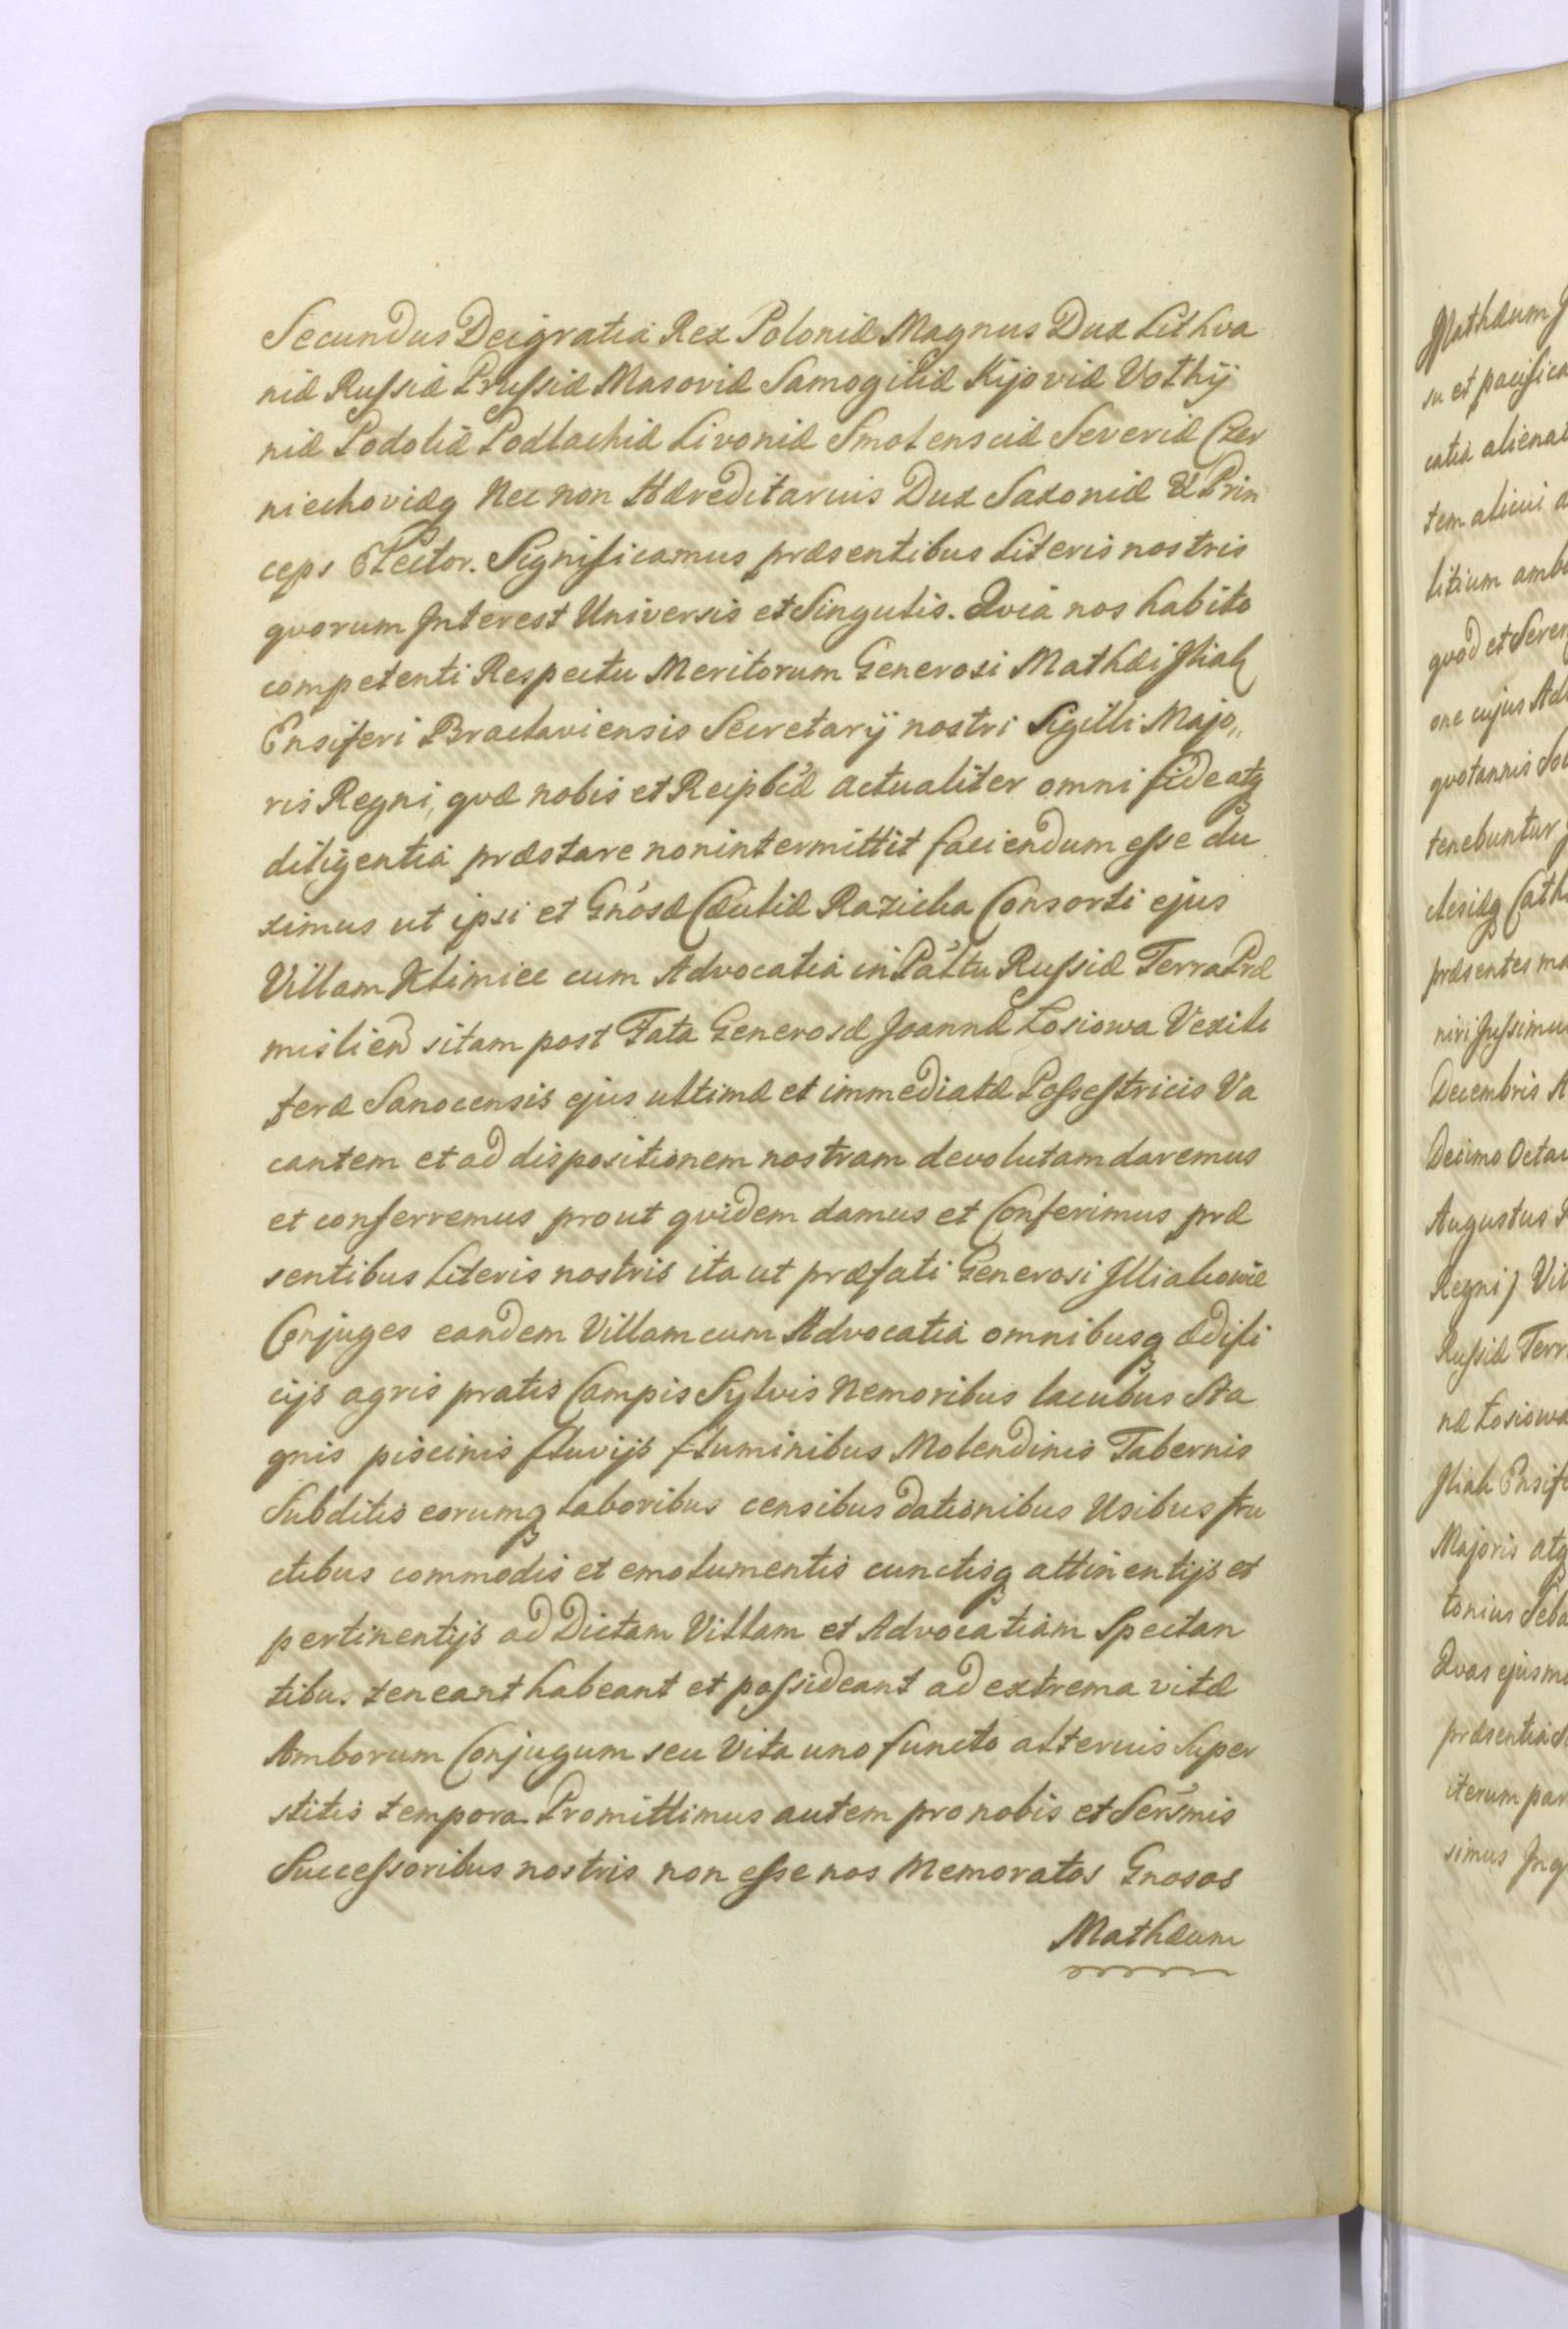 Secundus Dei gratia Rex Poloniæ Magnus Dux Lithva
niæ Russiæ Prussiæ Masoviæ Samogitiæ Kijoviæ Vothij
niæ Podoliæ Podlachiæ Livoniæ Smolensciæ Severiæ Czer
niechoviæq Nec non Hæreditarius Dux Saxoniæ Et Prin
ceps Elector. Significamus præsentibus Literis nostris
qvorum Interest Universis et Singulis. Qvia nos habito
competenti Respectu Meritorum Generosi Mathæi Iliak
Ensiferi Braclaviensis Secretarij nostri Sigilli Majo„
ris Regni, qvæ nobis et Reipblæ actualiter omni fide atq
diligentiâ præstare non intermittit faciendum esse du
ximus ut ipsi et Gnosæ Cæciliæ Razicka Consorti ejus
Villam Klimiec cum Advocatiâ in Pattu Russiæ Terra Præ
misliens sitam post Fata Generosæ Joannæ Łosiowa Vexili
feræ Sanocensis ejus ultimæ et immediatæ Possestricis Va
cantem et ad dispositionem nostram devolutam daremus
et conferremus prout qvidem damus et Conferimus præ
sentibus Literis nostris ita ut præfati Generosi Illiakowie
Conjuges eandem Villam cum Advocatiâ omnibusq ædifi
cijs agris pratis Campis Sylvis Nemoribus lacubus Sta
gnis piscinis fluvijs fluminibus Molendinis Tabernis
Subditis eorumq laboribus censibus dationibus Usibus fru
ctibus commodis et emolumentis cunctisq attinentijs et
pertinentijs ad Dictam Villam et Advocatiam Spectan
tibu. teneant habeant et possideant ad extrema vitæ
Amborum Conjugum seu Vita uno functo alterius Super
stitis tempora. Promittimus autem pro nobis et Sersmis
Successoribus nostris non esse nos Memoratos Gnosos
Mathæum
Mathæum
su et pacifica
catiâ aliena
tem alicui a
litium amb
qvod et Seren
one cujus Ad
qvotannis Sol
tenebuntur
clesiæq Cath
præsentes ma
niri Jussimus
Decembris A
Decimo Octav
Augustus
Regni) Vil
Russiæ Terr
næ Łosiowa
Iliak Ensife
Majoris atq
tonius Seba
Qvas ejusmo
præsentia
iterum par
simus Ing